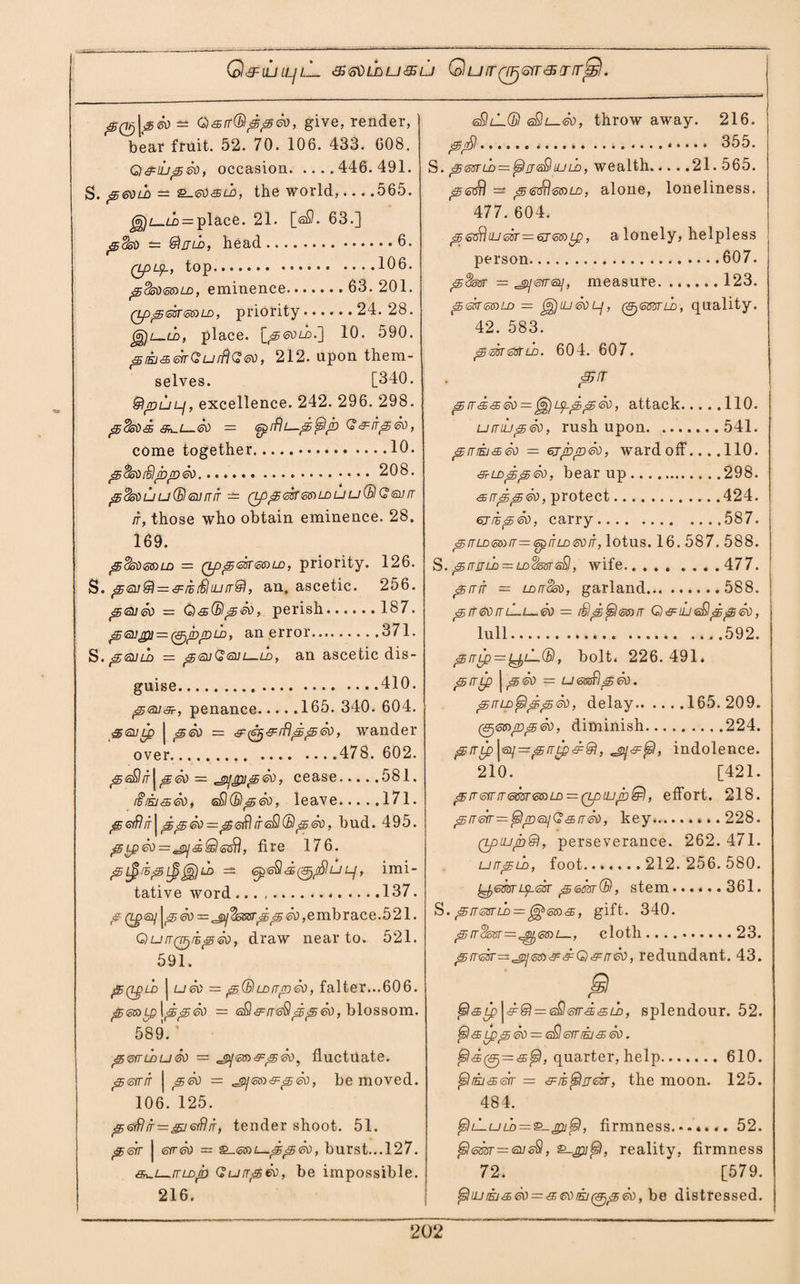 செய்யுட் கலம்பகப் பொருளகராதி.
தரு|தல் = கொடுத்தல், give, render,
bear fruit. 52. 70. 106. 433. 608.
செய்தல், occasion. .....446. 491.
S. தலம் = உலகம், the world,....565.
இடம்=place. 21. [வி. 63.]
தலை = சிரம், head..............6.
முடி, top.....................106.
தலைமை, eminence.......63. 201.
முதன்மை, priority......24. 28.
இடம், place. [தலம்.] 10. 590.
தங்கள்பேரிலே, 212. upon them-
selves. [340.
சிறப்பு, excellence. 242. 296. 298.
தலைக் கூடல் = ஒரிடத்திற் சேர்தல்,
come together..................10.
தலைநிற்றல்.....................208.
தலைப்படுவார் = முதன்மைப்படுவோ
ர், those who obtain eminence. 28.
169.
தலைமை = முதன்மை, priority. 126.
S. தவசி=சந்நியாசி, an. ascetic. 256.
தவல் = கெடுதல், perish......187.
தவறு=குற்றம், an error.........371.
S. தவம் = தவவேடம், an ascetic dis-
guise.........................410.
தவச, penance.....165. 340. 604.
தவழ் | தல் = சஞ்சரித்தல், wander
over.....................478. 602.
தவிர்|தல் = அறுதல், cease.....581.
நீங்கல், விடுதல், leave.....171.
தளிர்|த்தல்=தளிர்விடுதல், bud. 495.
தழல்=அக்கினி, fire 176.
தழீந்தழீஇம் = ஒலிக்குறிப்பு, imi-
tative word...................137.
தழுவு|தல்=அணைத்தல்,embrace.521.
பொருந்தல், draw near to. 521.
591.
தழும் | பல் = தடுமாறல், falter...606.
தழை|த்தல் = விசாவித்தல், blossom.
589.
தளம்பல் = அசைதல், fluctuate.
தளர் | தல் = அசைதல், be moved.
106. 125.
தளிர்=துளிர், tender shoot. 51.
தள் | ளல் = உடைத்தல், burst...127.
கூடாமற் போதல், be impossible.
216.
விட்டு விடல், throw away. 216.
தறி........................... 355.
S. தனம்=திரவியம், wealth.....21. 565.
தனி = தனிமை, alone, loneliness.
477. 604.
தனியன்=ஏழை, a lonely, helpless
person........................607.
தனை = அளவு, measure.......123.
தன்மை = இயல்பு, குணம், quality.
42. 583.
தன்னம். 604. 607.
தா
தாக்கல்=இடித்தல், attack.....110.
பாய்தல், rush upon. ........541.
தாங்கல் = ஏற்றல், ward off....110.
சுமத்தல், bear up............298.
காத்தல், protect............424.
ஏந்தல், carry............587.
தாமரை=ஓர்மலர், lotus. 16. 587. 588.
S. தாரம்=மனைவி, wife.........477.
தார் = மாலை, garland.........588.
தாலாட்டல் = நித்திரை செய்வித்தல்,
lull.........................592.
தாழ்=பூட்டு, bolt. 226. 491.
தாழ் | தல் = பணிதல்.
தாமதித்தல், delay........165. 209.
குறைதல், diminish.........224.
தாழ்|வு=தாழ்ச்சி, அசதி, indolence.
210. [421.
தாளாண்மை=முயற்சி, effort. 218.
தாள்=திறவுகோல், key.........228.
முயற்சி, perseverance. 262. 471.
பாதம், foot.......212. 256. 580.
பூண்டின் தண்டு, stem......361.
S. தானம்=ஈகை, gift. 340.
தானை=ஆடை, cloth............23.
தான்=அசைச்சொல், redundant. 43.
தி
திகழ்|ச்சி=விளக்கம், splendour. 52.
திகழ்தல்=விளங்கல்.
திக்கு=கதி, quarter, help........ 610.
திங்கள் = சந்திரன், the moon. 125.
484.
திட்பம்=உறுதி, firmness....... 52.
திண்=வலி, உறுதி, reality, firmness
72. [579.
தியங்கல்=கலங்குதல், be distressed.
202